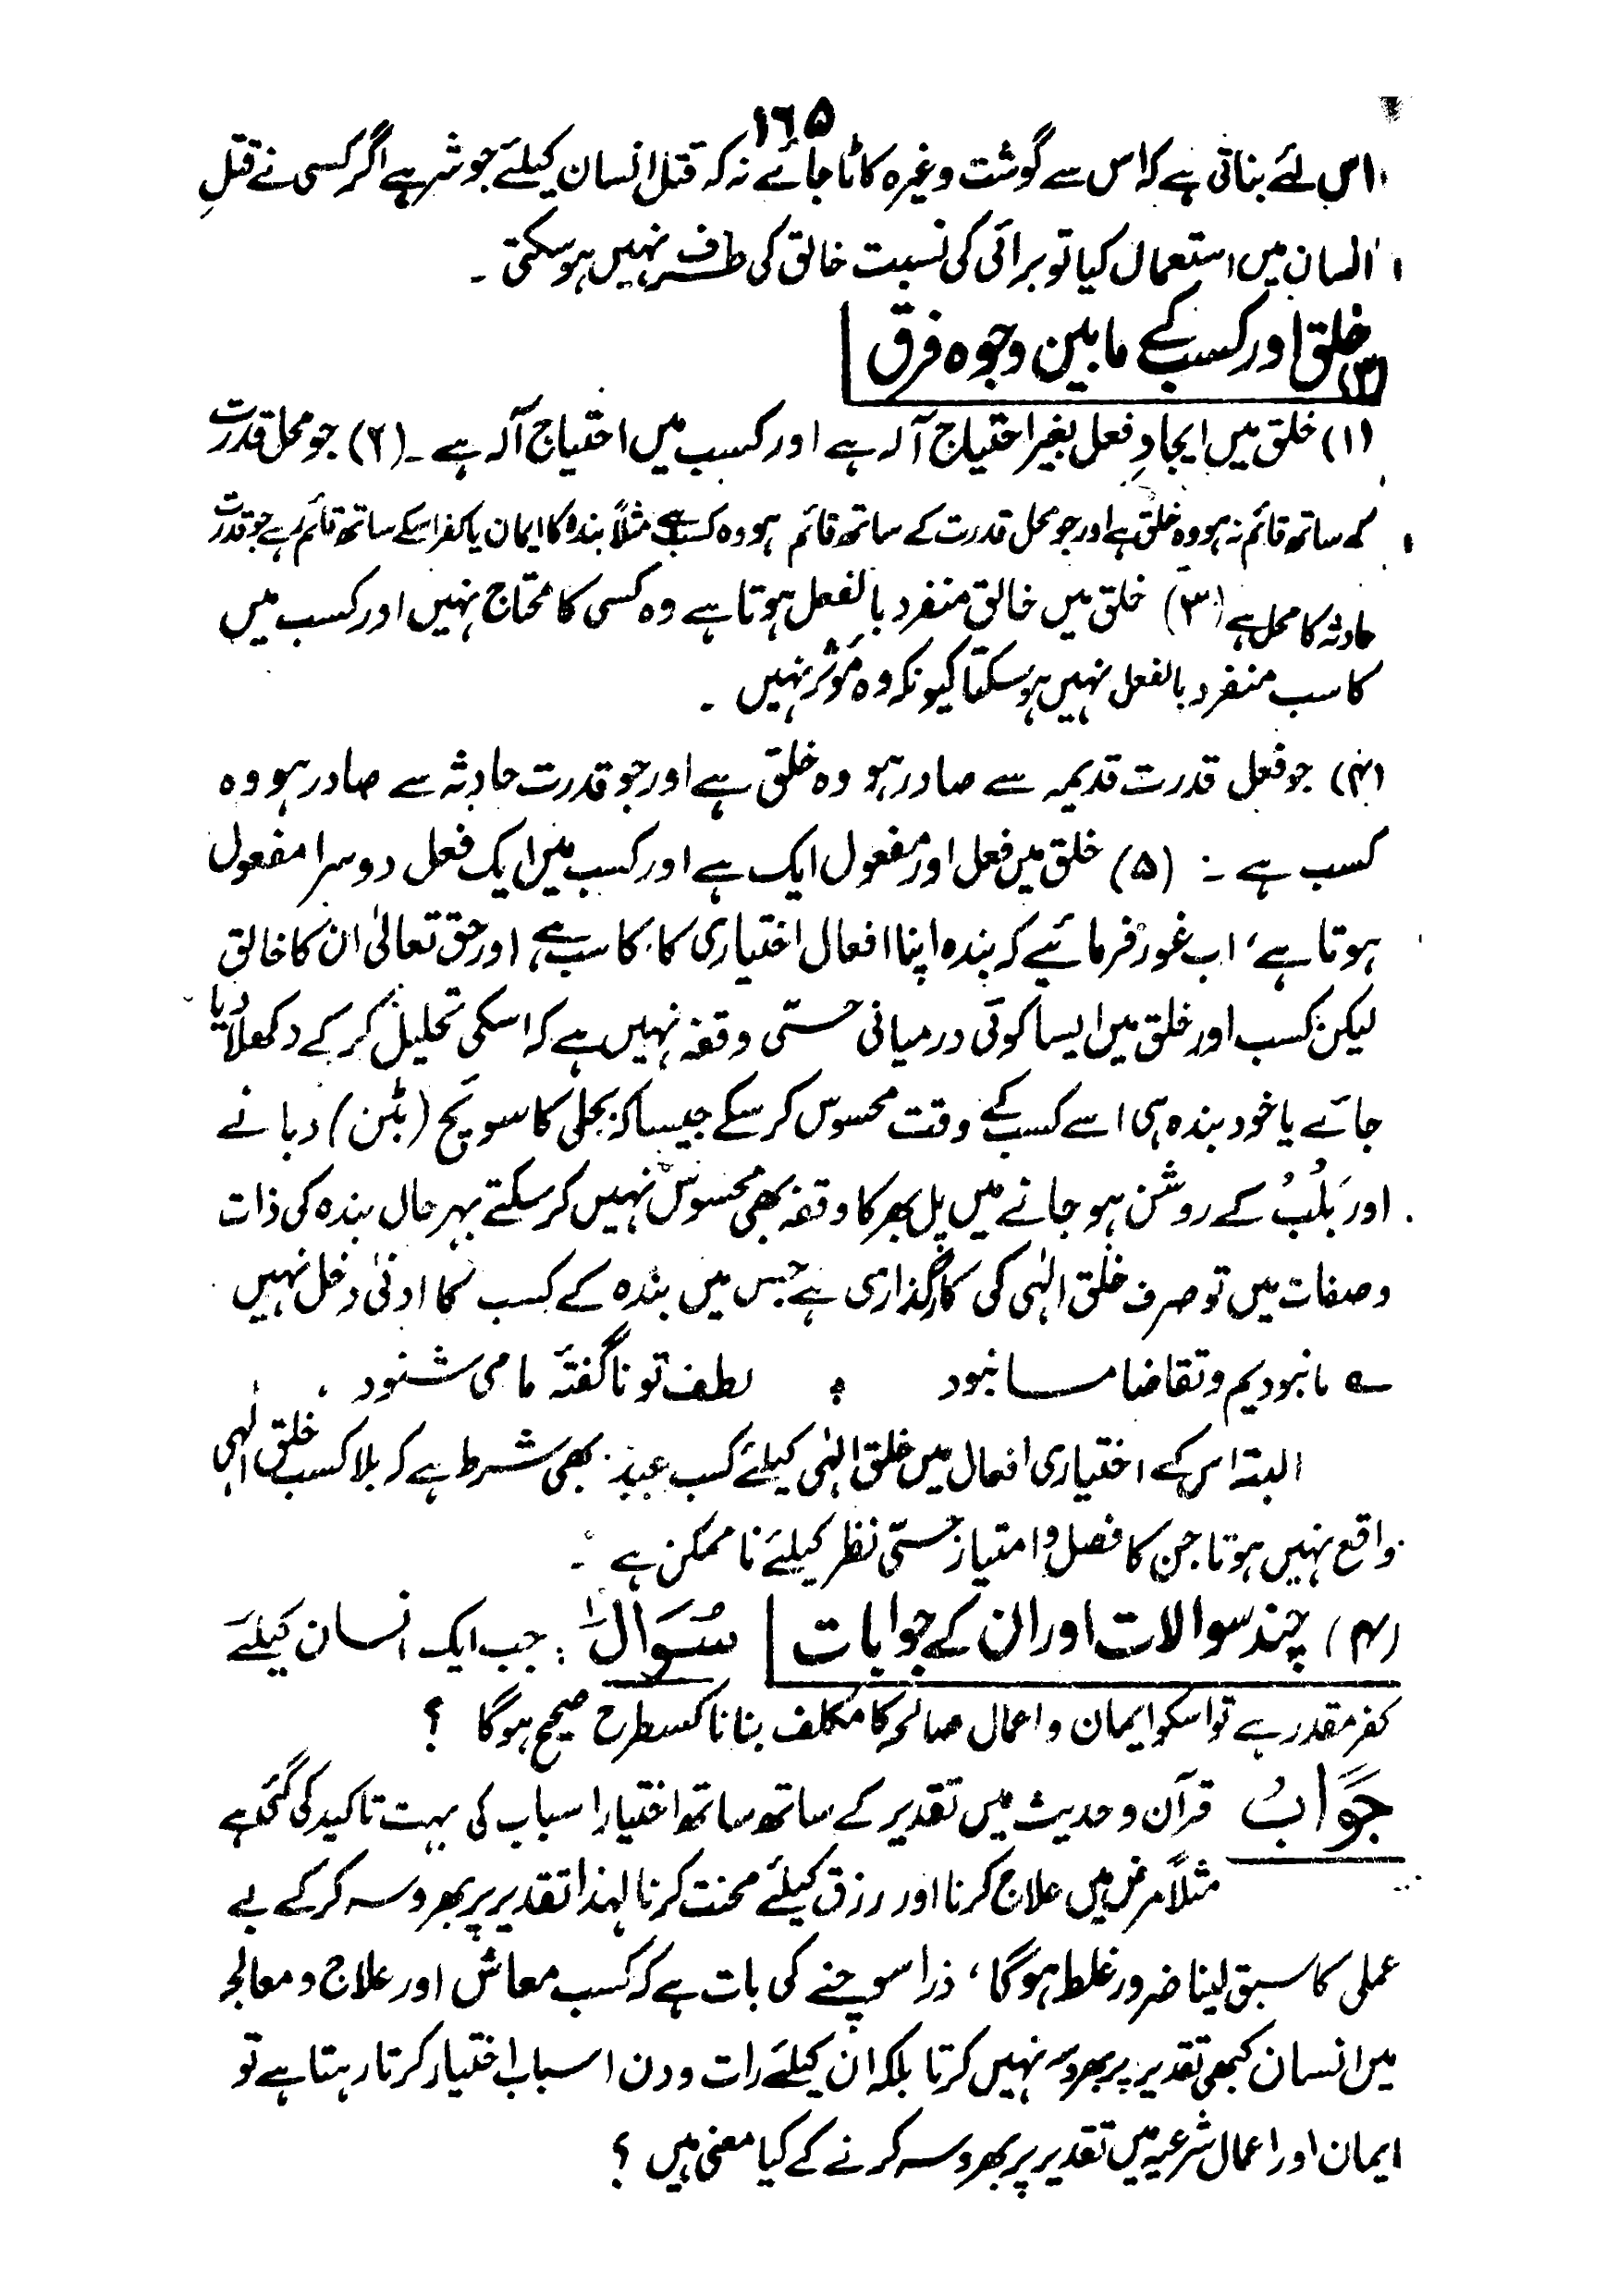 ۱۶۵
اس لئے بناتی ہے کہ اس سے گوشت وغیرہ کاٹا جائے نہ کہ قتل انسان کیلئے جو شر ہے اگر کسی نے قتلِ
انسان میں استعمال کیا تو برائی کی نسبت خالق کی طرف نہیں ہو سکتی ۔
(۳) خلق اور کسب کے مابین وجوہ فرق
(۱) خلق میں ایجادِ فعل بغیر احتیاج آلہ ہے اور کسب میں احتیاج آلہ ہے ۔ (۲) جو محل قدرت
کے ساتھ قائم نہ ہو وہ خلق ہے اور جو محل قدرت کے ساتھ قائم ہو وہ کسب ہے مثلاً بندہ کا ایمان یا کفر اسکے ساتھ قائم ہے جو قدرت
حادثہ کا محل ہے (۳) خلق میں خالق منفرد بالفعل ہوتا ہے وہ کسی کا محتاج نہیں اور کسب میں
کاسب منفرد بالفعل نہیں ہو سکتا کیونکہ وہ مؤثر نہیں ۔
(۴) جو فعل قدرت قدیمہ سے صادر ہو وہ خلق ہے اور جو قدرت حادثہ سے صادر ہو وہ
کسب ہے ۔ (۵) خلق میں فعل اور مفعول ایک ہے اور کسب میں ایک فعل دوسرا مفعول
ہوتا ہے، اب غور فرمائیے کہ بندہ اپنا افعال اختیاری کا کاسب ہے اور حق تعالیٰ ان کا خالق
لیکن کسب اور خلق میں ایسا کوئی درمیانی حسّی وقفہ نہیں ہے کہ اسکی تحلیل کر کے دکھلا دیا
جائے یا خود بندہ ہی اسے کسب کے وقت محسوس کر سکے جیسا کہ بجلی کا سوئچ (بٹن) دبانے
اور بَلْبُ کے روشن ہو جانے میں پل بھر کا وقفہ بھی محسوس نہیں کر سکتے بہر حال بندہ کی ذات
وصفات میں تو صرف خلق الٰہی کی کارگذاری ہے جس میں بندہ کے کسب کا ادنیٰ دخل نہیں
؎ ما نبودیم و تقاضا ما نبود ؛ لطف تو ناگفتۂ ما می شنود
البتہ اس کے اختیاری افعال میں خلق الٰہی کیلئے کسب عبد بھی شرط ہے کہ بلا کسب خلق الٰہی
واقع نہیں ہوتا جن کا فصل و امتیاز حسّی نظر کیلئے ناممکن ہے ۔
(۴) چند سوالات اور ان کے جوابات | سُوَالْ ۱ : جب ایک انسان کیلئے
کفر مقدر ہے تو اسکو ایمان و اعمال صالحہ کا مکلف بنانا کسطرح صحیح ہوگا ؟
جَوَابُ قرآن و حدیث میں تقدیر کے ساتھ ساتھ اختیار اسباب کی بہت تاکید کی گئی ہے
مثلاً مرض میں علاج کرنا اور رزق کیلئے محنت کرنا لہذا تقدیر پر بھروسہ کر کے بے
عملی کا سبق لینا ضرور غلط ہوگا، ذرا سوچنے کی بات ہے کہ کسب معاش اور علاج و معالجہ
میں انسان کبھی تقدیر پر بھروسہ نہیں کرتا بلکہ ان کیلئے رات و دن اسباب اختیار کرتا رہتا ہے تو
ایمان اور اعمال شرعیہ میں تقدیر پر بھروسہ کرنے کے کیا معنی ہیں ؟